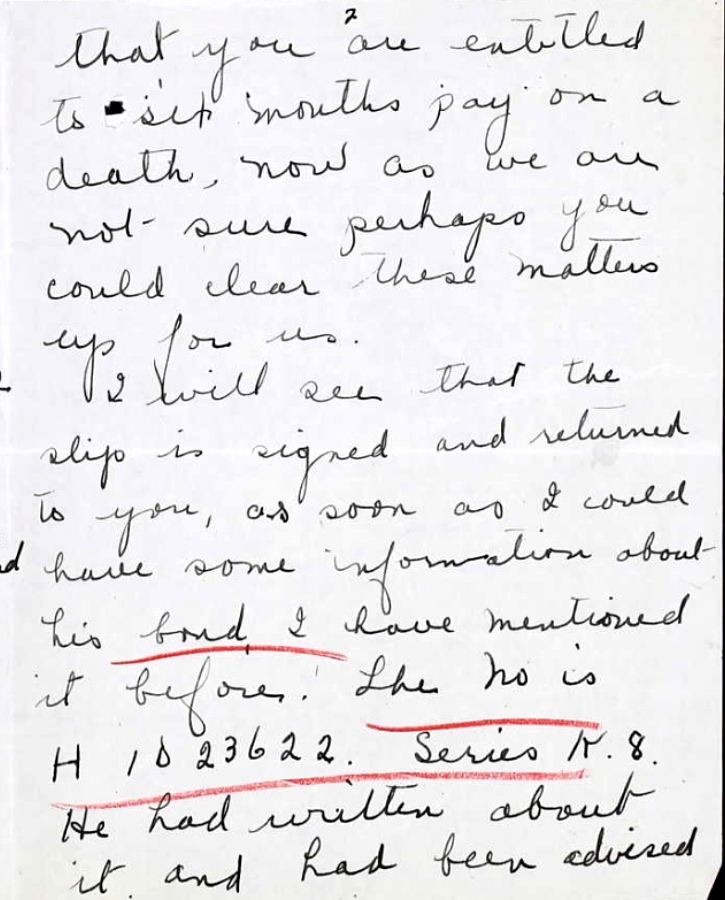 2
that you are entitled
to six months pay on a
death, now as we are
not sure perhaps you
could clear these matters
up for us.
I will see that the
slip is signed and returned
to you, as soon as I could
have some information about
his bond, I have mentioned
it before. The No is
H 1023622. Series H. 8.
He had written about
it and had been advised